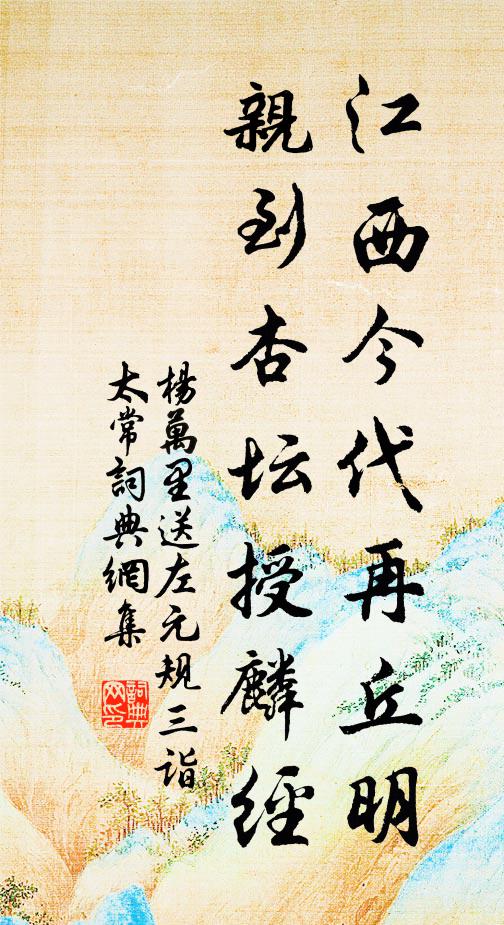 江西今代再丘明
親到杏坛授麟經
楊萬里送左元規三詣
太常詞典網集
詞典
网印